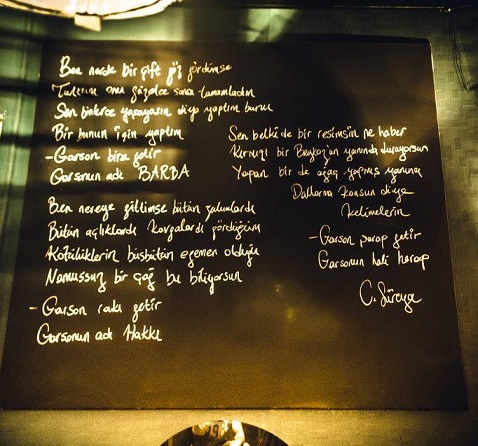 Ben nerde bir çift göz gördümse
Tuttum onu güzelce sana tamamladım
Sen binlerce yaşayasın diye yaptım bunu
Bir bunun için yaptım
- Garson bira getir
Garsonun adı BARBA
Ben nereye gittimse bütün zulumlardı
Bütün açlıklardı kavgalardı gördüğüm
Kötülüklerin büsbütün egemen olduğu
Namussuz bir çağ bu biliyorsun
- Garson rakı getir
Garsonun adı Hakkı
Sen belki de bir resimsin ne haber
Kırmızı bir Beykoz'un yanında duruyorsun
Yapan bir de ağaç yapmış yanına
Dallarına konsun diye
kelimelerin
- Garson şarap getir
Garsonun hali harap
C. Süreya